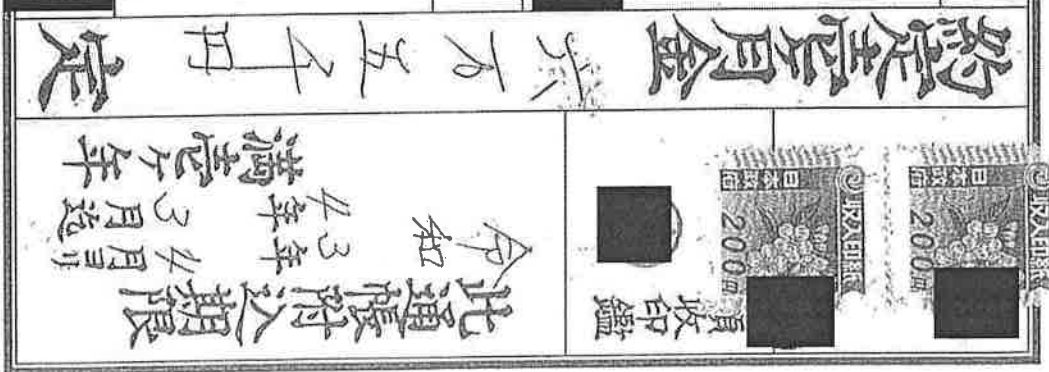 約定壱月金 六万五千円 定
此通帳附込期限
令和
3年4月ヨリ
4年3月迄
満壱ヶ年
収印鑑
収入印紙
日本政府
200円
収入印紙
日本政府
200円